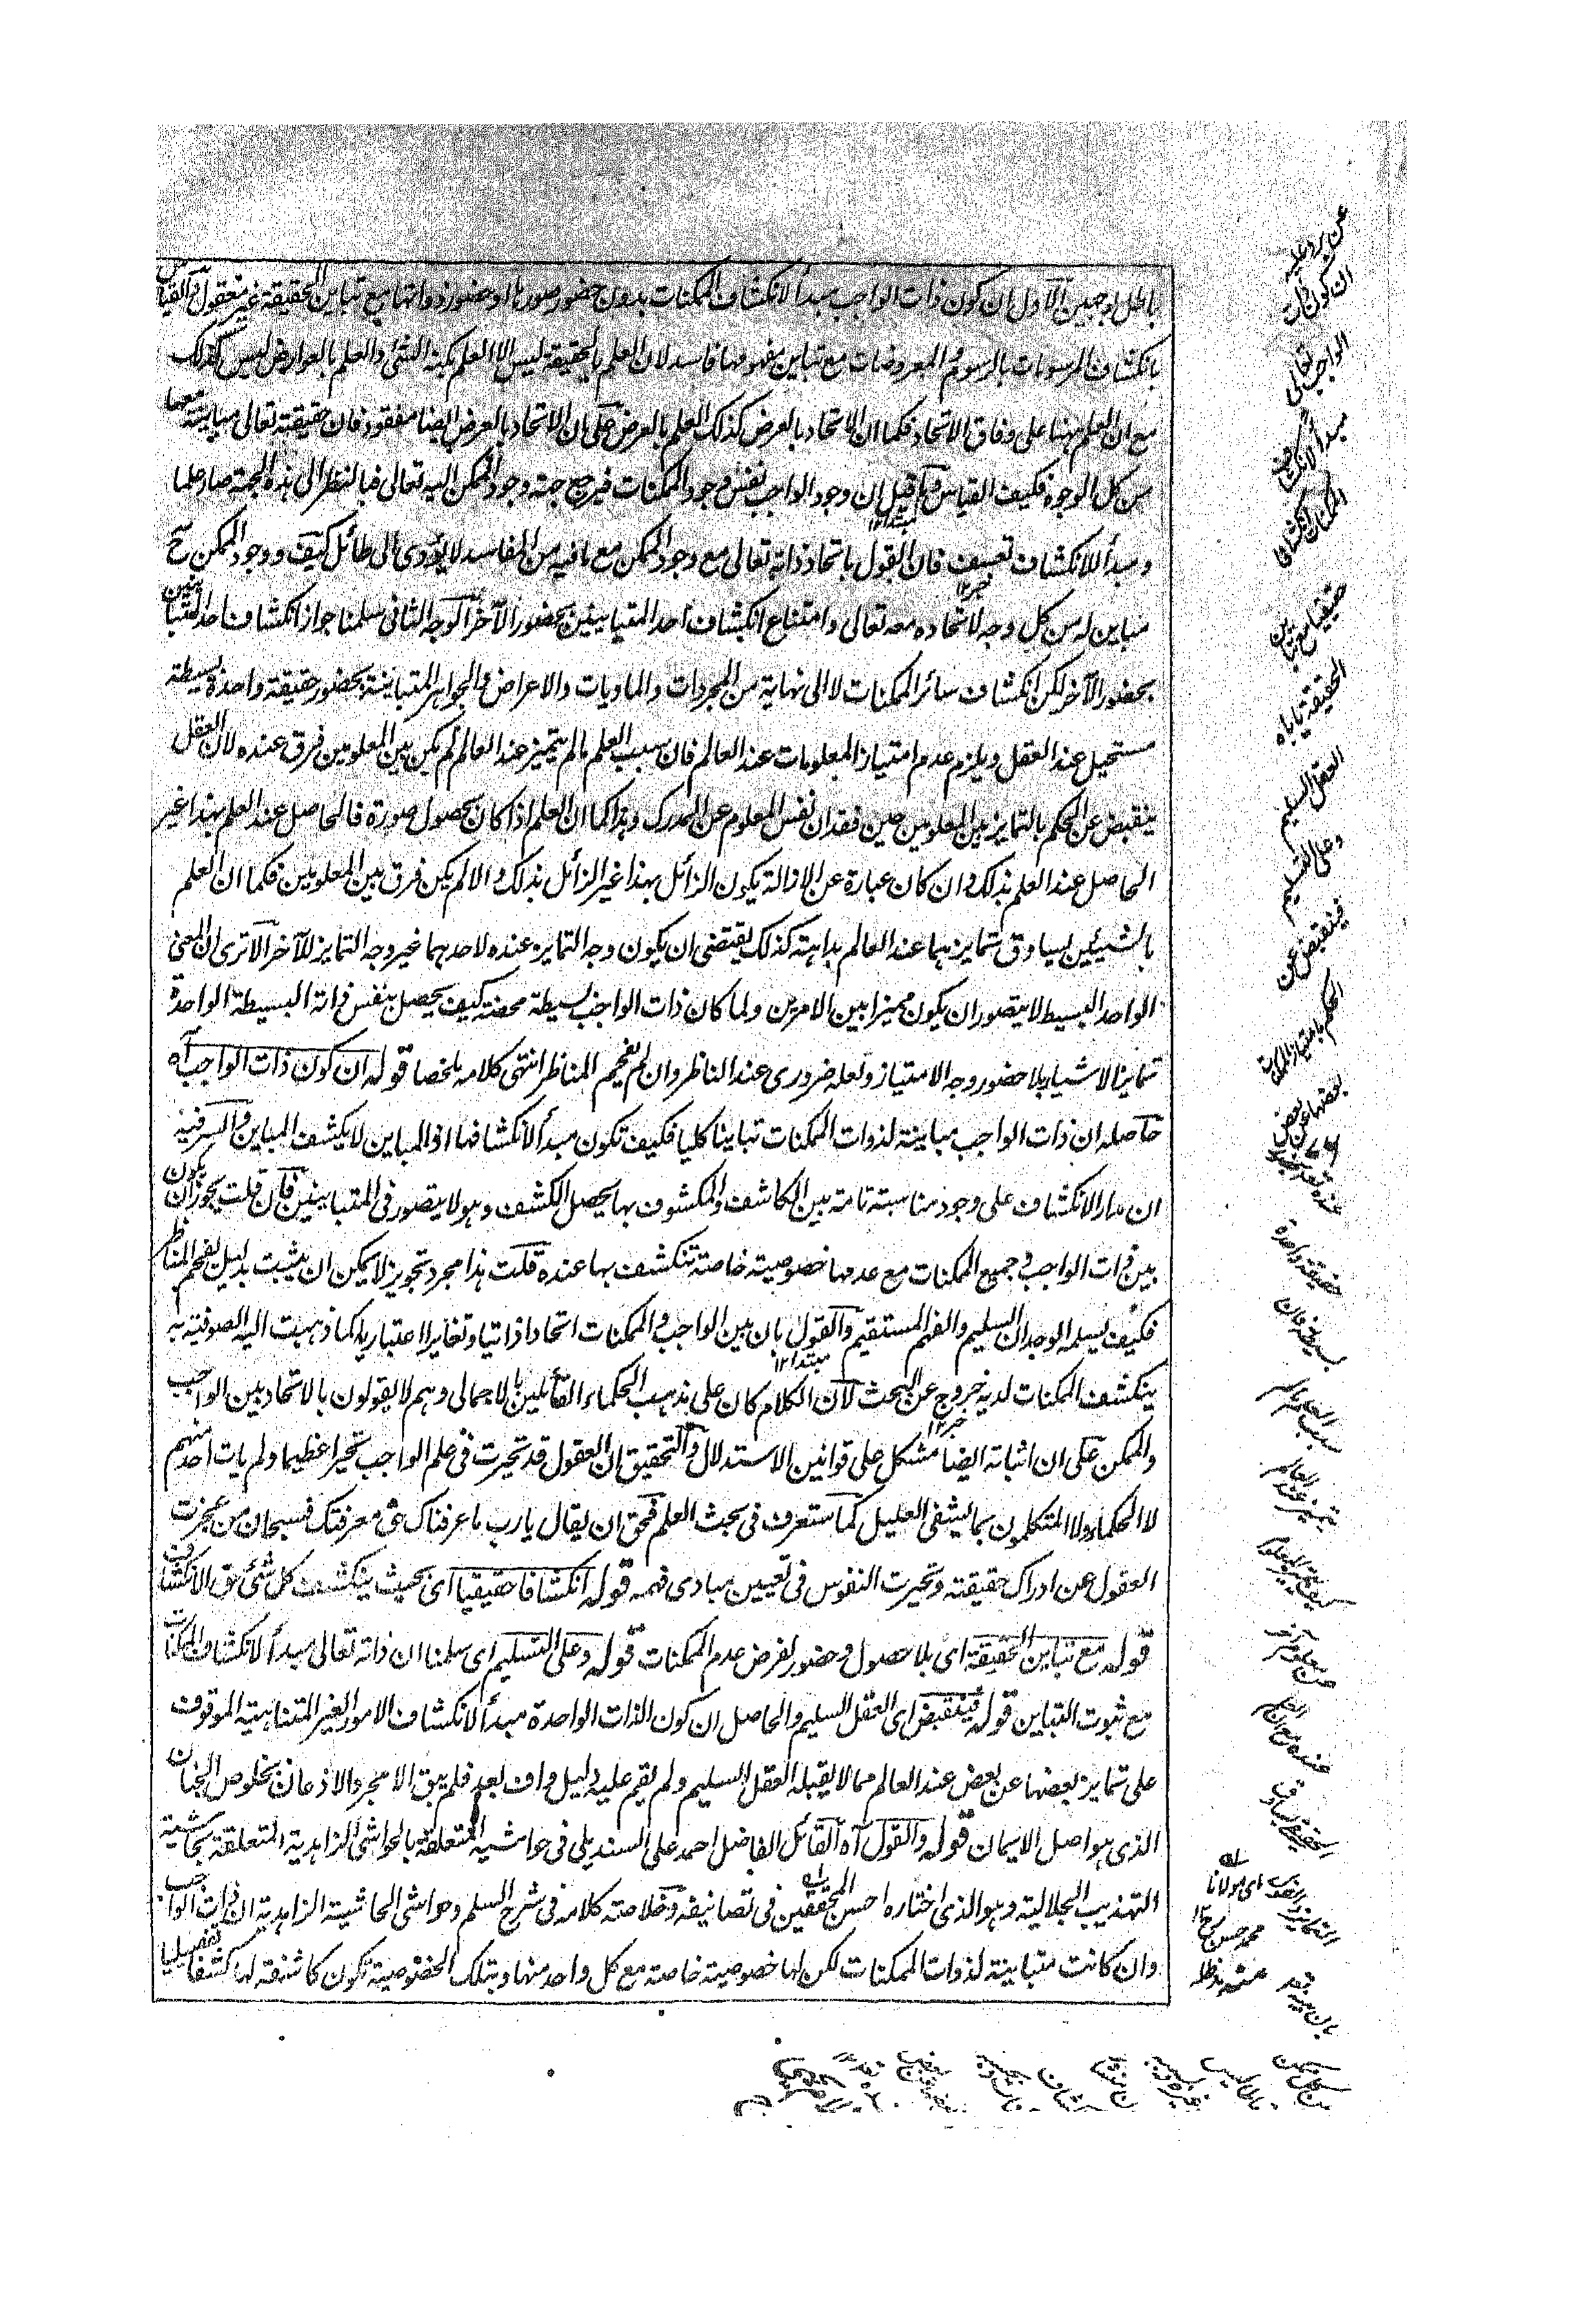 باطل بوجهين الاول ان كون ذات الواجب مبدأ لانكشاف الممكنات بدون حضور صورها او حضور ذواتها مع تباين الحقيقة غير معقول والقياس
بانكشاف المرسومات بالرسوم والمعروضات مع تباين مفهومها فاسد لان العلم بالحقيقة ليس الا العلم بكنه الشئ والعلم بالعوارض ليس كذلك
مع ان العلم ههنا على وفاق الاتحاد فكما ان الاتحاد بالعرض كذلك العلم بالعرض على ان الاتحاد بالعرض ايضا مفقود فان حقيقته تعالى مباينة معها
من كل الوجوه فكيف القياس وما قيل ان وجود الواجب نفس وجود الممكنات فيرجع جهة وجود الممكن اليه تعالى فبالنظر الى هذه الجهة صار علما
مبتدا ١٢
و مبدأ للانكشاف تعسف فان القول باتحاد ذاته تعالى مع وجود الممكن مع ما فيه من المفاسد لا يؤدى الى طائل كيف و وجود الممكن ح
خبر ١٢
مباين له من كل وجه لاتحاده معه تعالى وامتناع انكشاف احد المتباينين بحضور الآخر الوجه الثانى سلمنا جواز انكشاف احد المتباينين
بحضور الآخر لكن انكشاف سائر الممكنات لا الى نهاية من المجردات والماديات والاعراض والجواهر المتباينة بحضور حقيقة واحدة بسيطة
مستحيل عند العقل ويلزم عدم امتياز المعلومات عند العالم فان سبب العلم ما لم يتميز عند العالم لم يكن بين المعلومين فرق عنده لان العقل
ينقبض عن الحكم بالتمايز بين المعلومين حين فقدان نفس المعلوم عن المدرك وهذا كما ان العلم اذا كان بحصول صورة فالحاصل عند العلم بهذا غير
الحاصل عند العلم بذلك وان كان عبارة عن الازالة يكون الزائل بهذا غير الزائل بذلك والا لم يكن فرق بين المعلومين فكما ان العلم
بالشيئين يساوق تمايزهما عند العالم بداهته كذلك يقتضى ان يكون وجه التمايز عنده لاحدهما غير وجه التمايز للآخر الا ترى ان المعنى
الواحد البسيط لا يتصور ان يكون مميزا بين الامرين ولما كان ذات الواجب بسيطة محضة كيف يحصل بنفس ذاته البسيطة الواحدة
تمايز الاشياء بلا حضور وجه الامتياز ولعله ضرورى عند الناظر وان لم يفحم المناظر انتهى كلامه ملخصا قوله ان كون ذات الواجب آه
حاصله ان ذات الواجب مباينة لذوات الممكنات تباينا كليا فكيف تكون مبدأ لانكشافها اذ المباين لا يكشف المباين والسر فيه
ان مدار الانكشاف على وجود مناسبة تامة بين الكاشف والمكشوف بها يحصل الكشف وهو لا يتصور فى المتباينين فان قلت يجوز ان يكون
بين ذات الواجب و جميع الممكنات مع عدمها خصوصية خاصة تنكشف بها عنده قلت هذا مجرد تجويز لا يمكن ان يثبت بدليل يفحم المناظر
فكيف يسلمه الوجدان السليم والفهم المستقيم والقول بان بين الواجب و الممكنات اتحادا ذاتيا وتغايرا اعتباريا كما ذهبت اليه الصوفية به
مبتدا ١٢
ينكشف الممكنات لديه خروج عن البحث لان الكلام كان على مذهب الحكماء القائلين بالاجمالى وهم لا يقولون بالاتحاد بين الواجب
خبر ١٢
والممكن على ان اثباته ايضا مشكل على قوانين الاستدلال والتحقيق ان العقول قد تحيرت فى علم الواجب تحيرا عظيما ولم يات احد منهم
لا الحكماء ولا المتكلمون بما يشفى العليل كما ستعرف فى بحث العلم فحق ان يقال يارب ما عرفناك حق معرفتك فسبحان من عجزت
العقول عن ادراك حقيقته وتحيرت النفوس فى تعيين مبادى فهمه قوله انكشافا حقيقيا اى بحيث ينكشف كل شئ حق الانكشاف
قوله مع تباين الحقيقة اى بلا حصول و حضور لفرض عدم الممكنات قوله وعلى التسليم اى سلمنا ان ذاته تعالى مبدأ لانكشاف الممكنات
مع ثبوت التباين قوله فينقبض اى العقل السليم والحاصل ان كون الذات الواحدة مبدأ لانكشاف الامور الغير المتناهية الموقوف
على تمايز بعضها عن بعض عند العالم مما لا يقبله العقل السليم ولم يقم عليه دليل واف بعد فلم يبق الا مجرد الاذعان بخلوص الجنان
الذى هو اصل الايمان قوله والقول آه القائل الفاضل احمد على السنديلى فى حواشيه المتعلقة بالحواشى الزاهدية المتعلقة بحاشية
التهذيب الجلالية وهو الذى اختاره احسن المحققين فى تصانيفه وخلاصة كلامه فى شرح السلم وحواشى الحاشية الزاهدية ان ذات الواجب
وان كانت متباينة لذوات الممكنات لكن لها خصوصية خاصة مع كل واحد منها وبتلك الخصوصية تكون كاشفة لها كشفا تفصيليا
عن يرد عليه
ان كون ذات
الواجب تعالى
مبدأ لانكشاف
الممكنات انكشافا
حقيقيا مع تباين
الحقيقة يأباه
العقل السليم
وعلى التسليم
فينقبض عن
الحكم بامتياز الممكنات
بعضها عن بعض
حقيقة واحدة
بسيطة فان
اى مولانا
محمد حسن رح ١٢
منه مد ظله